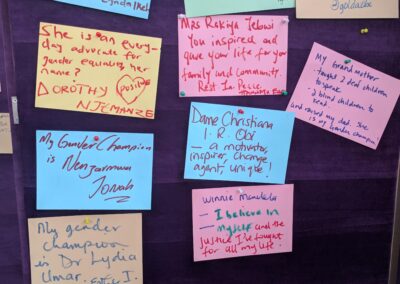 @goldalox
She is an every-
day advocate for
gender equality, her
name?
positive
DOROTHY
NJEMANZE
Mrs Rakiya Yebuwi
You inspired and
gave your life for your
family and Community.
Rest In Peace
My Grand mother
- taught 2 deaf children
to speak
- 2 blind children to
read.
and raised my dad. She
is my Gender champion
My Gender Champion
is
Jonah
Dame Christiana
I. R. Obi
— a motivator,
inspirer, change
agent, unique!
Winnie Mandela
— I believe in
Myself and the
justice I've fought
for all my life!
My gender
champion
is Dr Lydia
Umar.